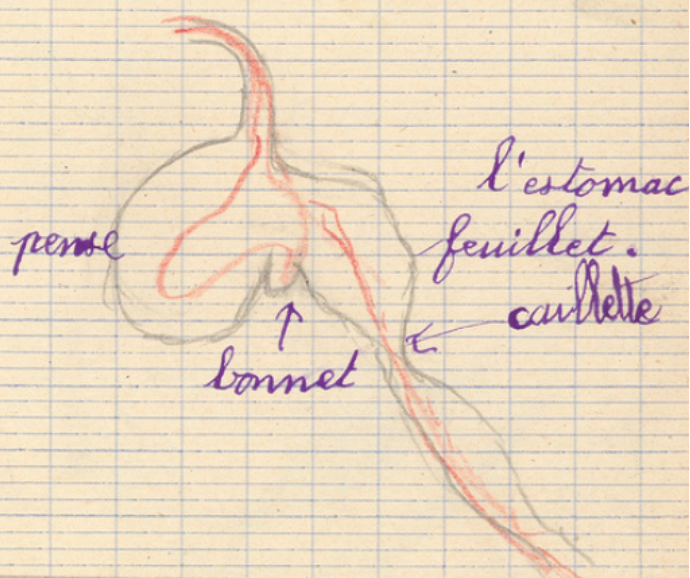 l'estomac
panse
feuillet.
caillette
bonnet